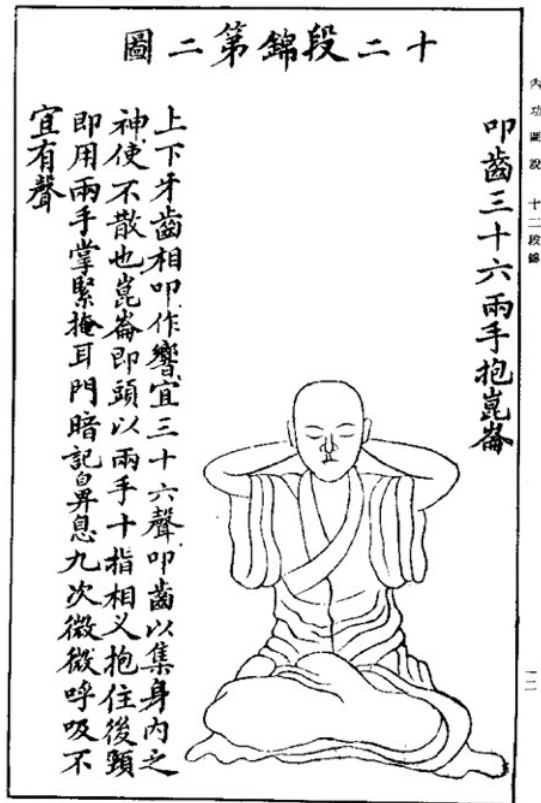 十二段錦第二圖
內功圖說 十二段錦
叩齒三十六兩手抱崑崙
上下牙齒相叩作響宜三十六聲叩齒以集身內之
神使不散也崑崙即頭以兩手十指相义抱住後頸
即用兩手掌緊掩耳門暗記鼻息九次微微呼吸不
宜有聲
一一